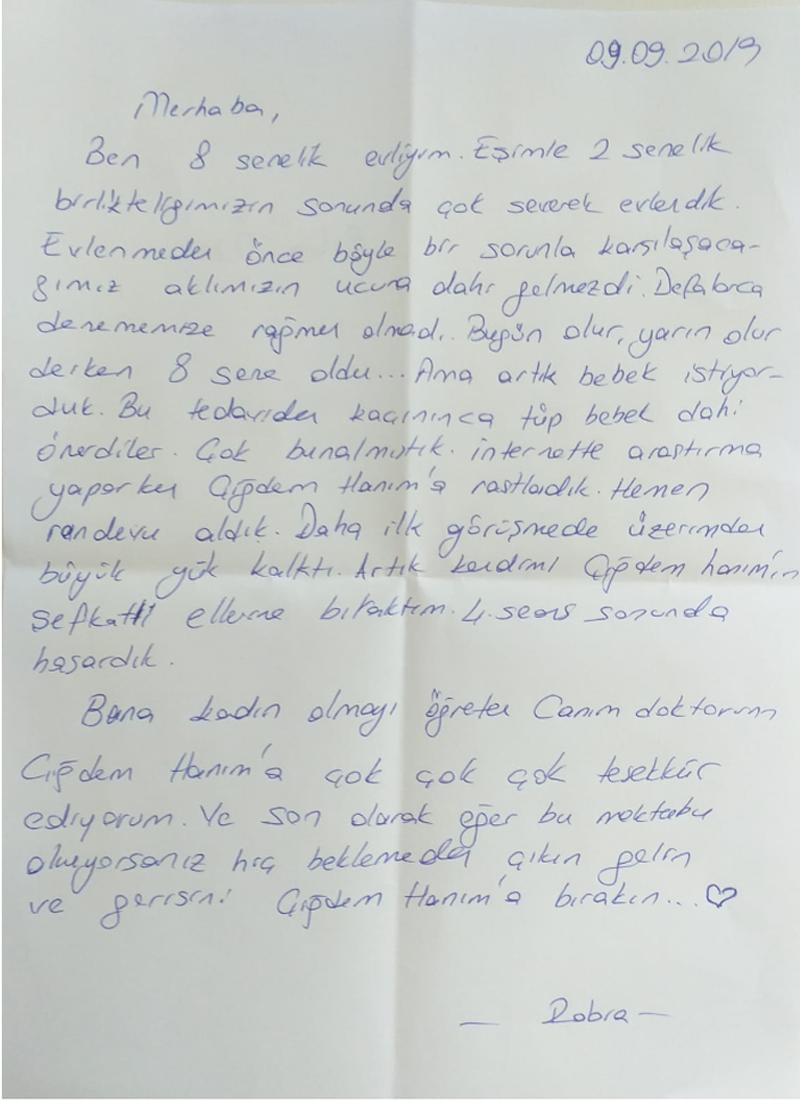 09.09.2019
Merhaba,
Ben 8 senelik evliyim. Eşimle 2 senelik
birlikteliğimizin sonunda çok severek evlendik.
Evlenmeden önce böyle bir sorunla karşılaşaca-
ğımız aklımızın ucuna dahi gelmezdi. Defalarca
denememize rağmen olmadı. Bugün olur, yarın olur
derken 8 sene oldu... Ama artık bebek istiyor-
duk. Bu tedaviden kaçınınca tüp bebek dahi
önerdiler. Çok bunalmıştık. internette araştırma
yaparken Çiğdem Hanım'a rastladık. Hemen
randevu aldık. Daha ilk görüşmede üzerimden
büyük yük kalktı. Artık kendimi Çiğdem hanım'ın
şefkatli ellerine bıraktım. 4. seans sonunda
başardık.
Bana kadın olmayı öğreten Canım doktorum
Çiğdem Hanım'a çok çok çok teşekkür
ediyorum. Ve son olarak eğer bu mektubu
okuyorsanız hiç beklemeden çıkın gelin
ve gerisini Çiğdem Hanım'a bırakın... ♡
— Rabia —